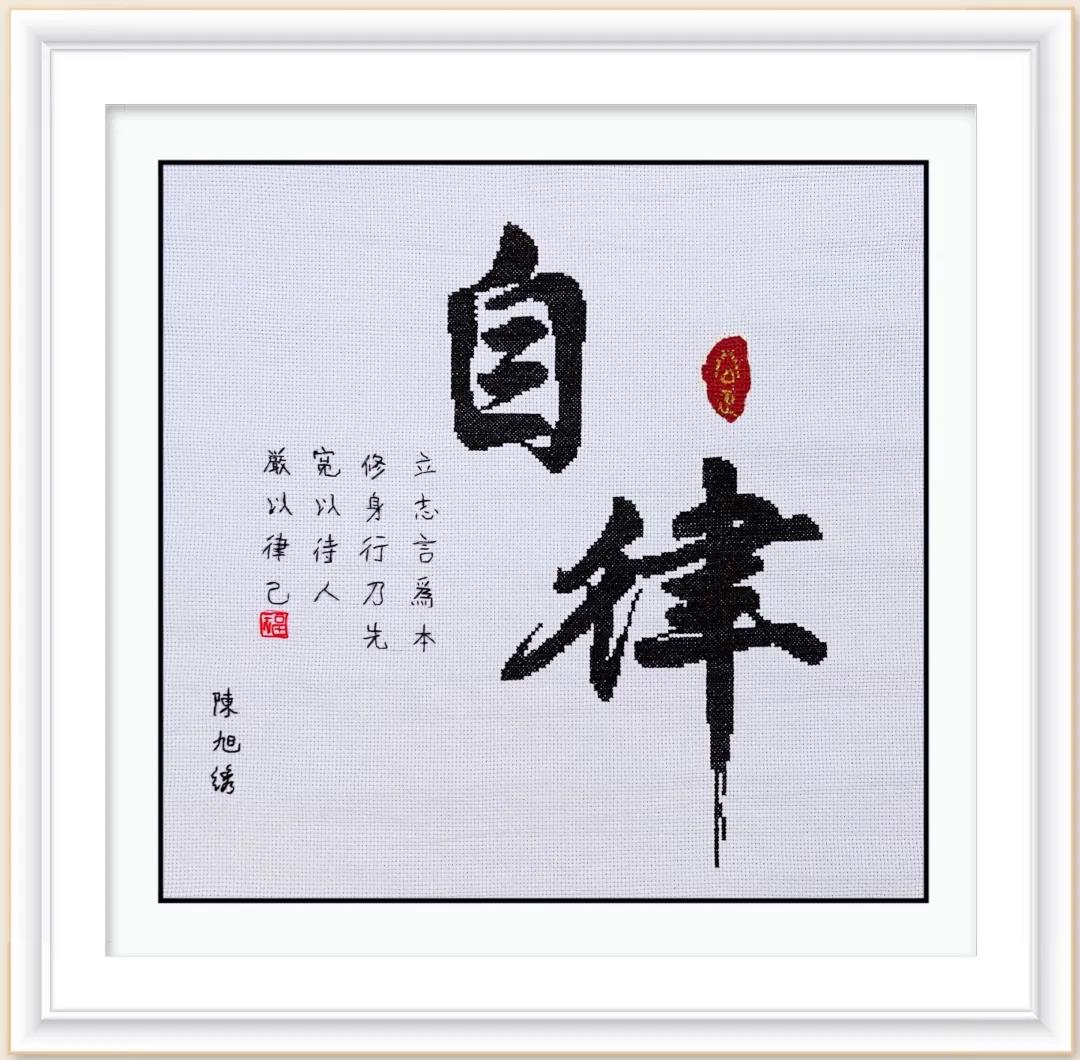 自律
立志言爲本
修身行乃先
寬以待人
嚴以律己
福
陳旭绣